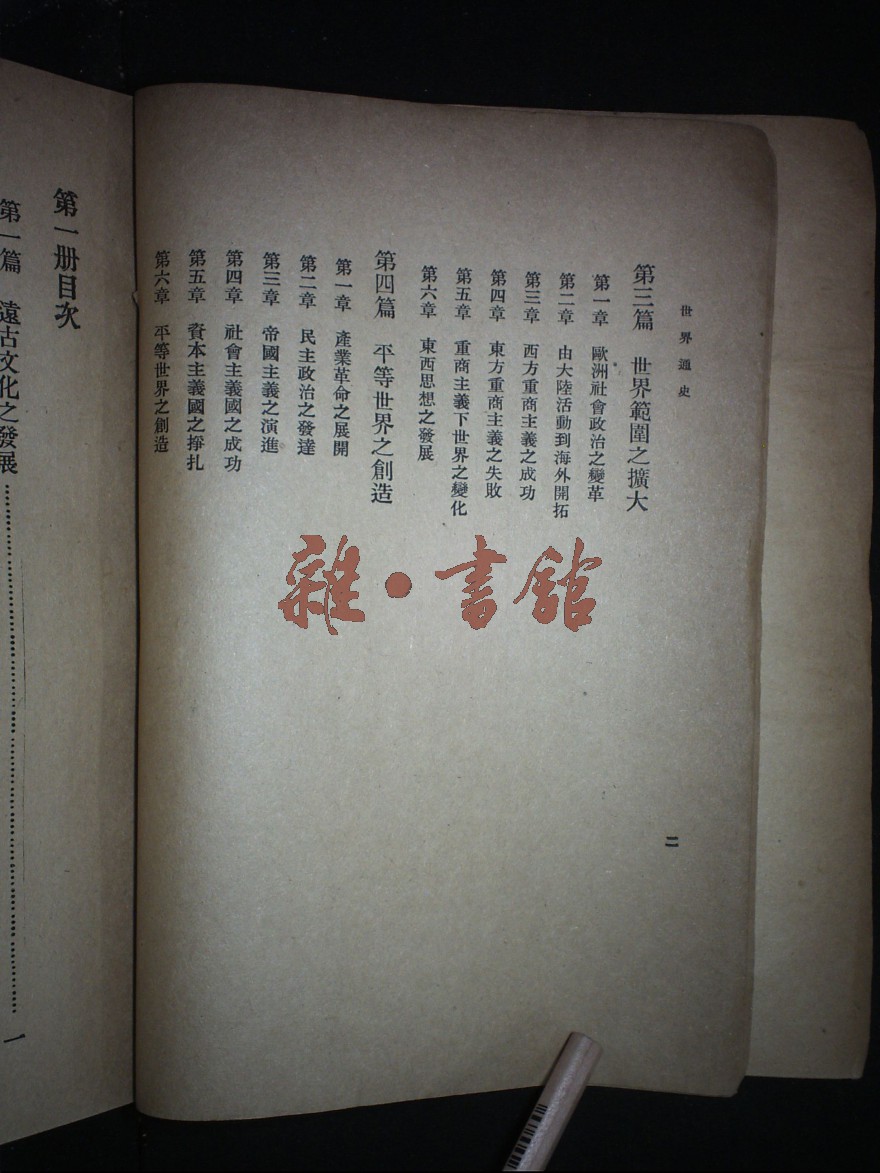 世界通史
第三篇　世界範圍之擴大
第一章　歐洲社會政治之變革
第二章　由大陸活動到海外開拓
第三章　西方重商主義之成功
第四章　東方重商主義之失敗
第五章　重商主義下世界之變化
第六章　東西思想之發展
第四篇　平等世界之創造
第一章　產業革命之展開
第二章　民主政治之發達
第三章　帝國主義之演進
第四章　社會主義國之成功
第五章　資本主義國之掙扎
第六章　平等世界之創造
二
第一册目次
第一篇　遠古文化之發展……………………一
雜•書館